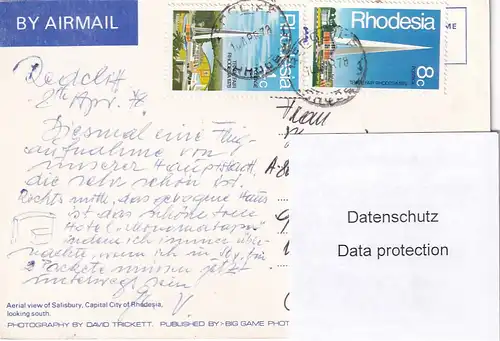 BY AIRMAIL
Rhodesia
Rhodesia
8c
TRADE FAIR RHODESIA 1978
8th Apr. 78
Diesmal eine Flug-
aufnahme von
unserer Hauptstadt,
die sehr schön ist.
Rechts mitte, das gebogene Haus
ist das schöne
Hotel „Monomatapa"
indem ich immer über-
nachte, wenn ich in Sby. bin
2 Packete müssen jetzt
unterwegs sein
V.
Frau
A-80
Datenschutz
Data protection
Aerial view of Salisbury, Capital City of Rhodesia,
looking south.
PHOTOGRAPHY BY DAVID TRICKETT. PUBLISHED BY:- BIG GAME PHOT